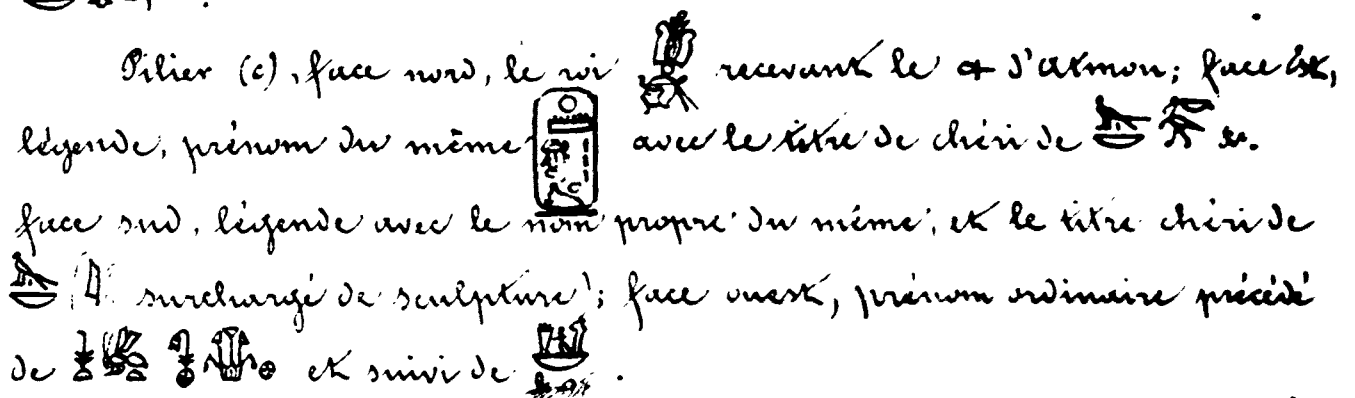 Pilier (c), face nord, le roi recevant le d'Atmon; face Est,
légende, prénom du même avec le titre de chéri de &c.
face sud, légende avec le nom propre du même, et le titre chéri de
surchargé de sculpture); face ouest, prénom ordinaire précédé
de et suivi de .